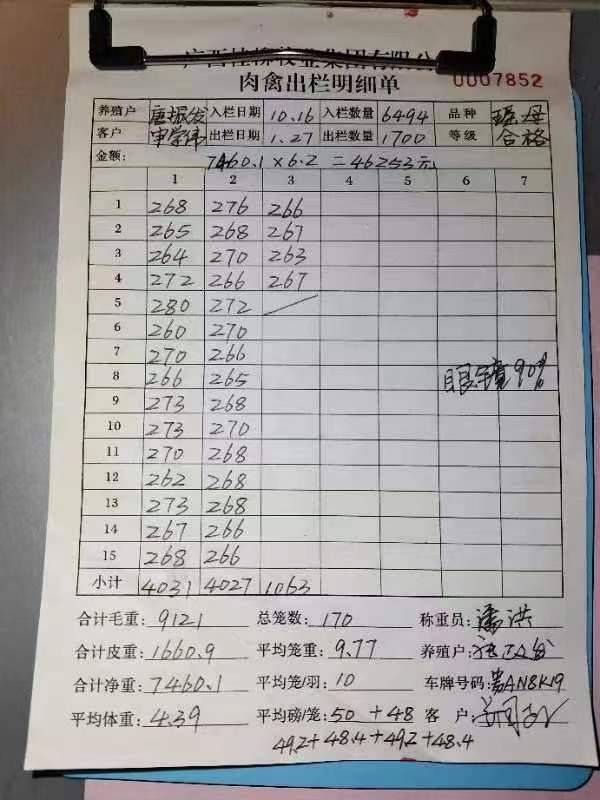 广西桂柳牧业集团有限公
肉禽出栏明细单 0007852
养殖户 唐振发 入栏日期 10.16 入栏数量 6494 品种 瑶母
客户 申学伟 出栏日期 1.27 出栏数量 1700 等级 合格
金额: 7460.1 × 6.2 = 46253元
1 2 3 4 5 6 7
1 268 276 266
2 265 268 267
3 264 270 263
4 272 266 267
5 280 272
6 260 270
7 270 266
8 266 265 眼镜90%
9 273 268
10 273 270
11 270 268
12 262 268
13 273 268
14 267 266
15 268 266
小计 4031 4027 1063
合计毛重: 9121 总笼数: 170 称重员: 潘洪
合计皮重: 1660.9 平均笼重: 9.77 养殖户:
合计净重: 7460.1 平均笼/羽: 10 车牌号码: 贵AN8K19
平均体重: 4.39 平均磅/笼: 50 + 48 客户:
49.2 + 48.4 + 49.2 + 48.4